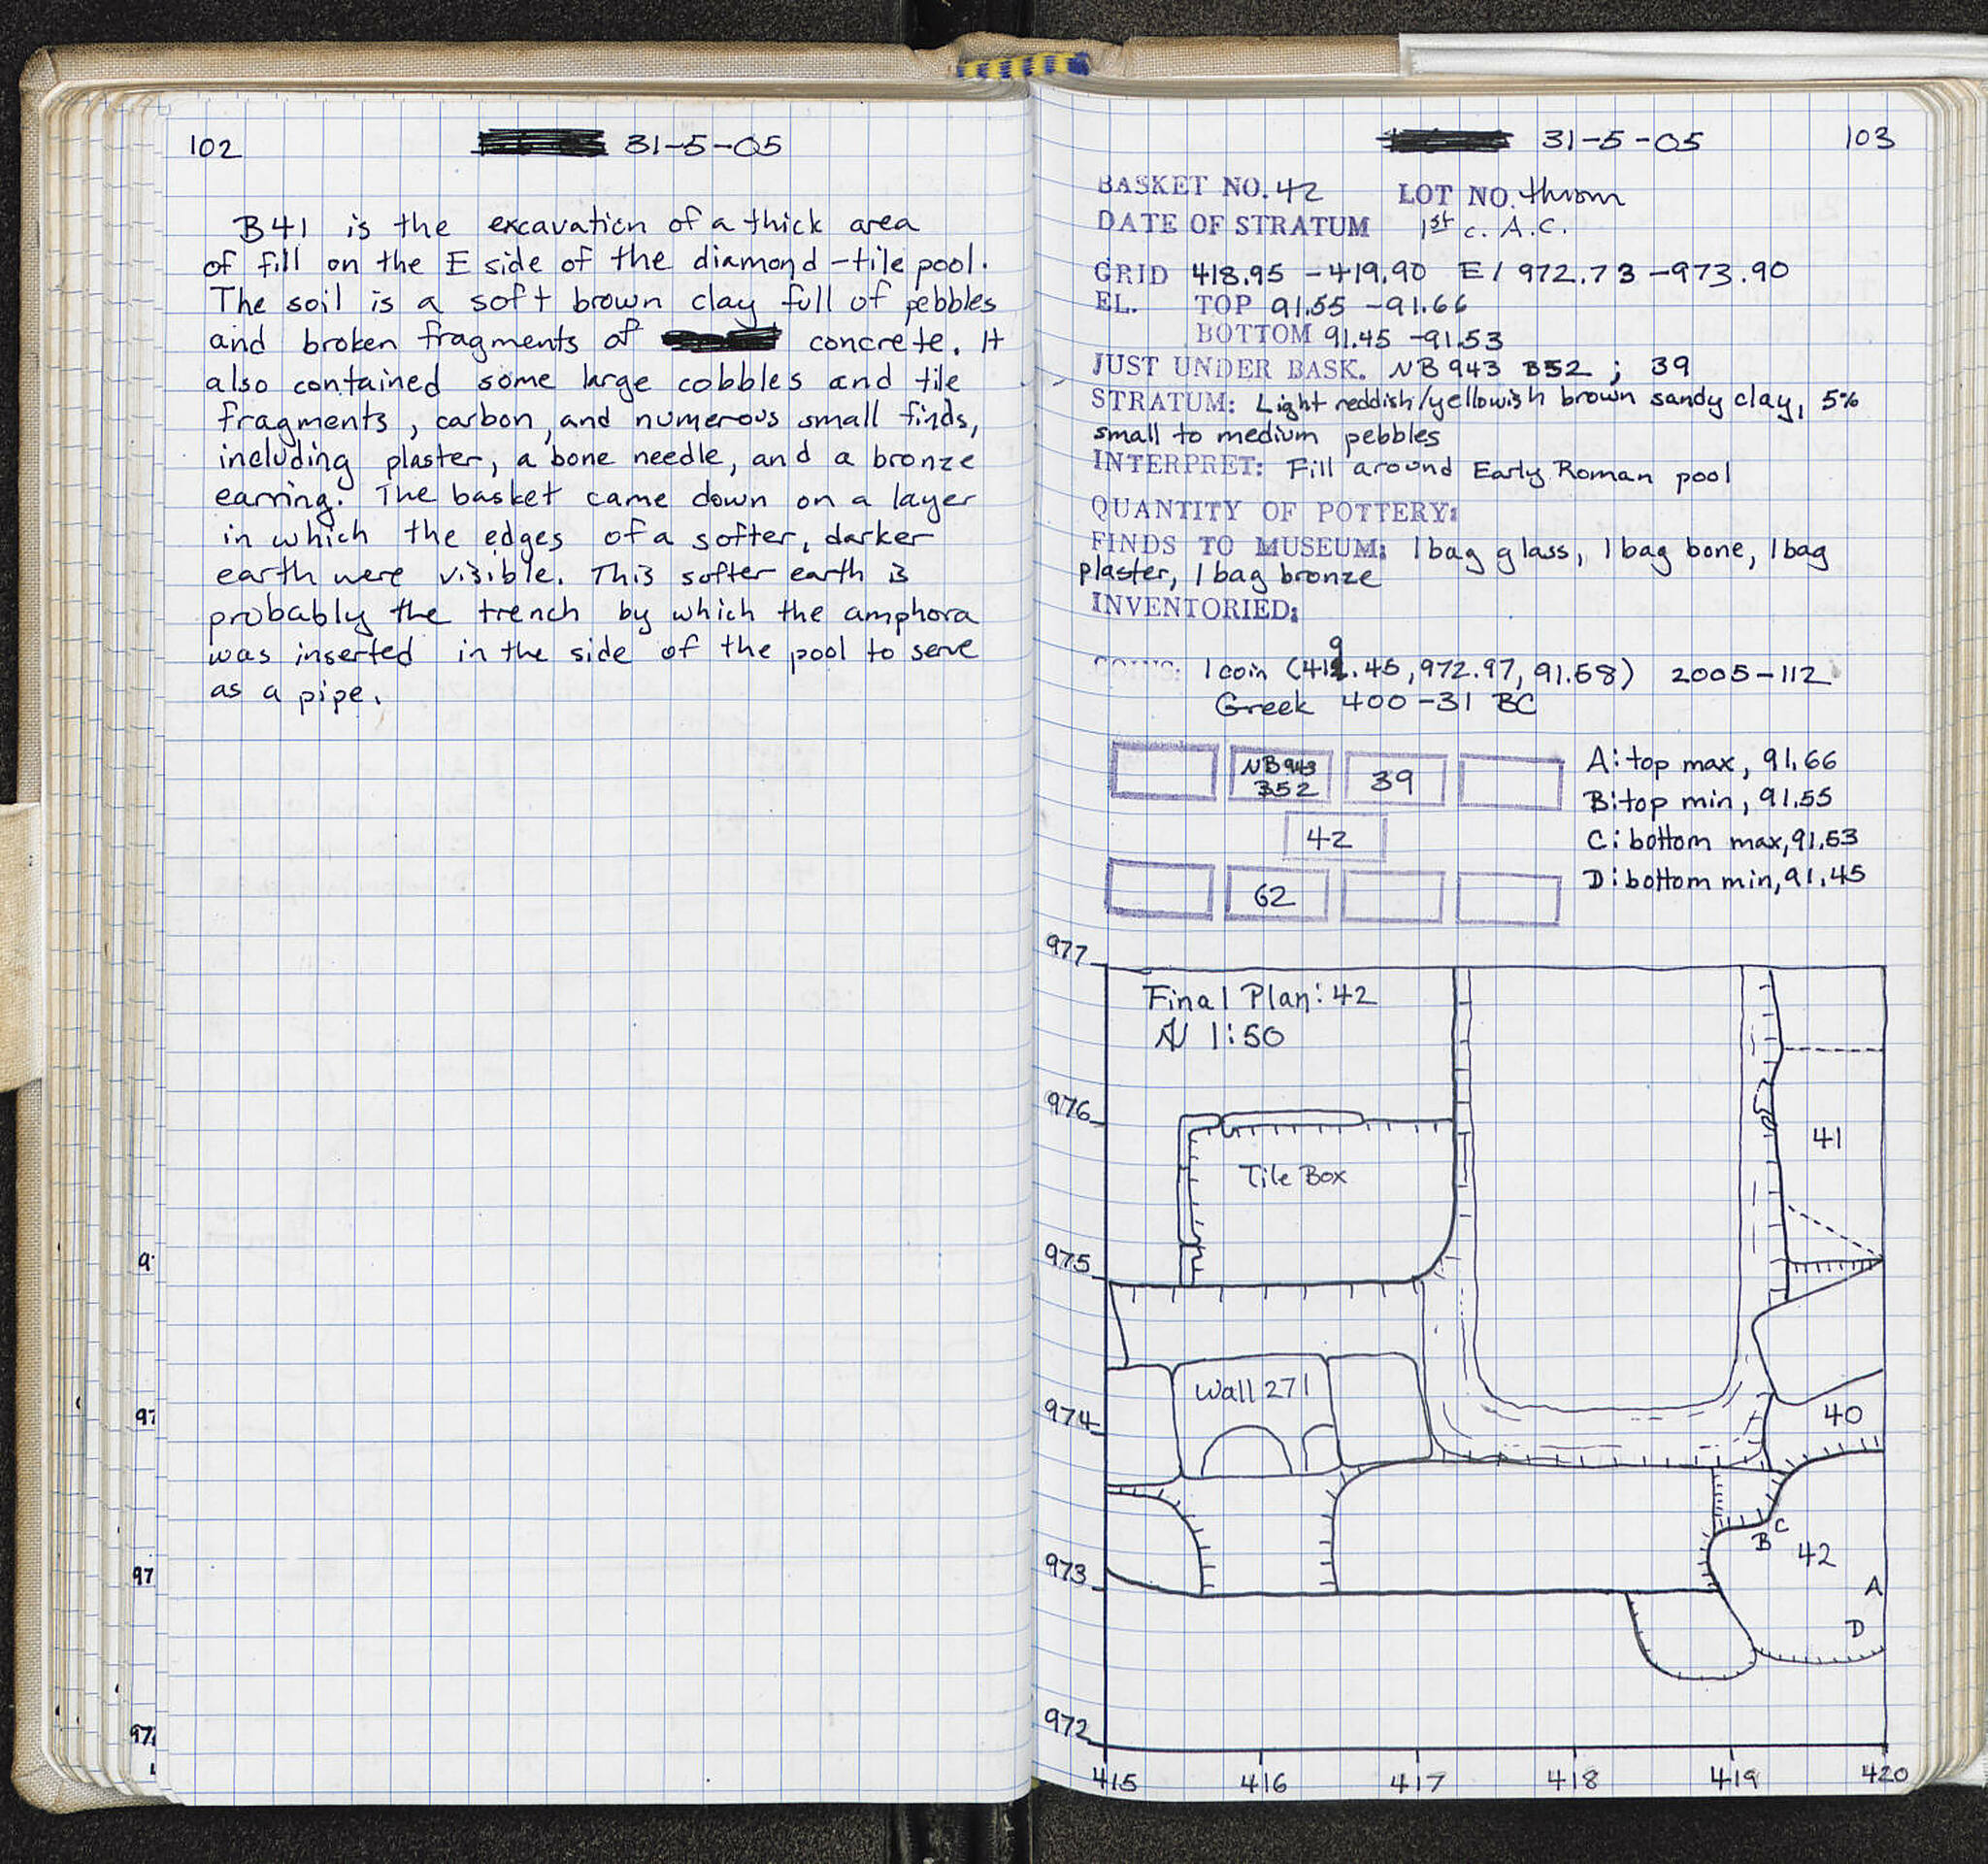 102
31-5-05
B41 is the excavation of a thick area
of fill on the E side of the diamond-tile pool.
The soil is a soft brown clay full of pebbles
and broken fragments of concrete. It
also contained some large cobbles and tile
fragments, carbon, and numerous small finds,
including plaster, a bone needle, and a bronze
earring. The basket came down on a layer
in which the edges of a softer, darker
earth were visible. This softer earth is
probably the trench by which the amphora
was inserted in the side of the pool to serve
as a pipe.
31-5-05
103
BASKET NO. 42 LOT NO. thrown
DATE OF STRATUM 1st c. A.C.
GRID 418.95 - 419.90 E / 972.73 - 973.90
EL. TOP 91.55 - 91.66
BOTTOM 91.45 - 91.53
JUST UNDER BASK. NB 943 B52 ; 39
STRATUM: Light reddish/yellowish brown sandy clay, 5%
small to medium pebbles
INTERPRET: Fill around Early Roman pool
QUANTITY OF POTTERY:
FINDS TO MUSEUM: 1 bag glass, 1 bag bone, 1 bag
plaster, 1 bag bronze
INVENTORIED:
COINS: 1 coin (419.45, 972.97, 91.58) 2005-112
Greek 400-31 BC
NB 943
B52
39
42
62
A: top max, 91.66
B: top min, 91.55
C: bottom max, 91.53
D: bottom min, 91.45
977
Final Plan: 42
N 1:50
976
41
Tile Box
975
Wall 271
974
40
C
B
42
973
A
D
972
415 416 417 418 419 420